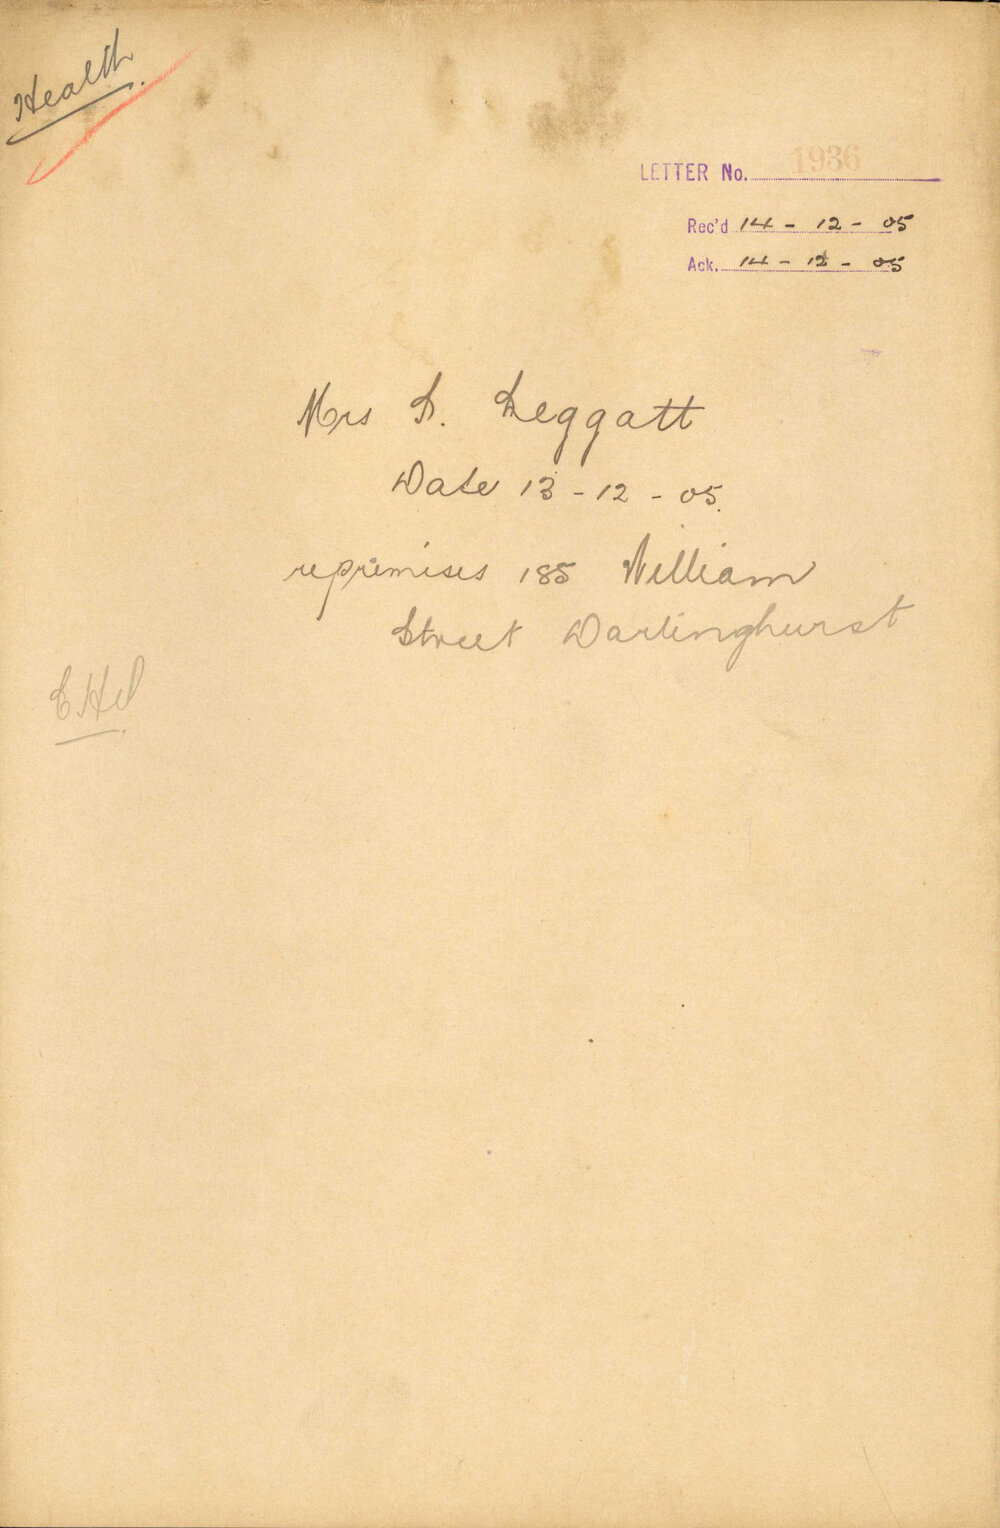 Health.
LETTER No. 1936
Rec'd 14 - 12 - 05
Ack. 14 - 12 - 05
Mrs S. Leggatt
Date 13 - 12 - 05.
re premises 185 William
Street Darlinghurst